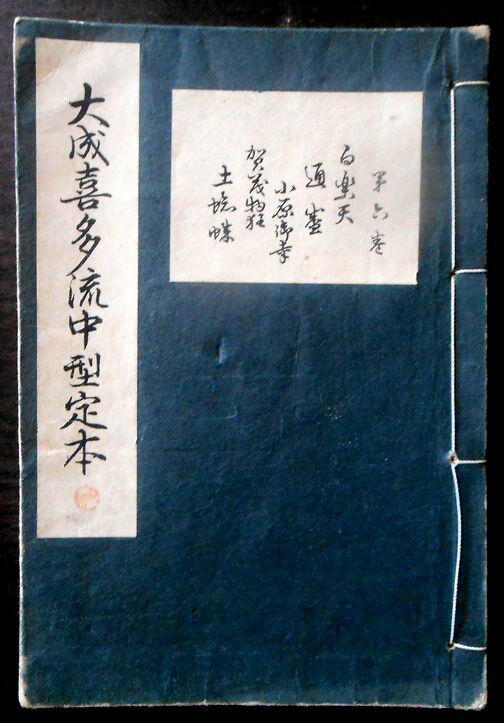 第六巻
白楽天
通盛
小原御幸
賀茂物狂
土蜘蛛
大成喜多流中型定本